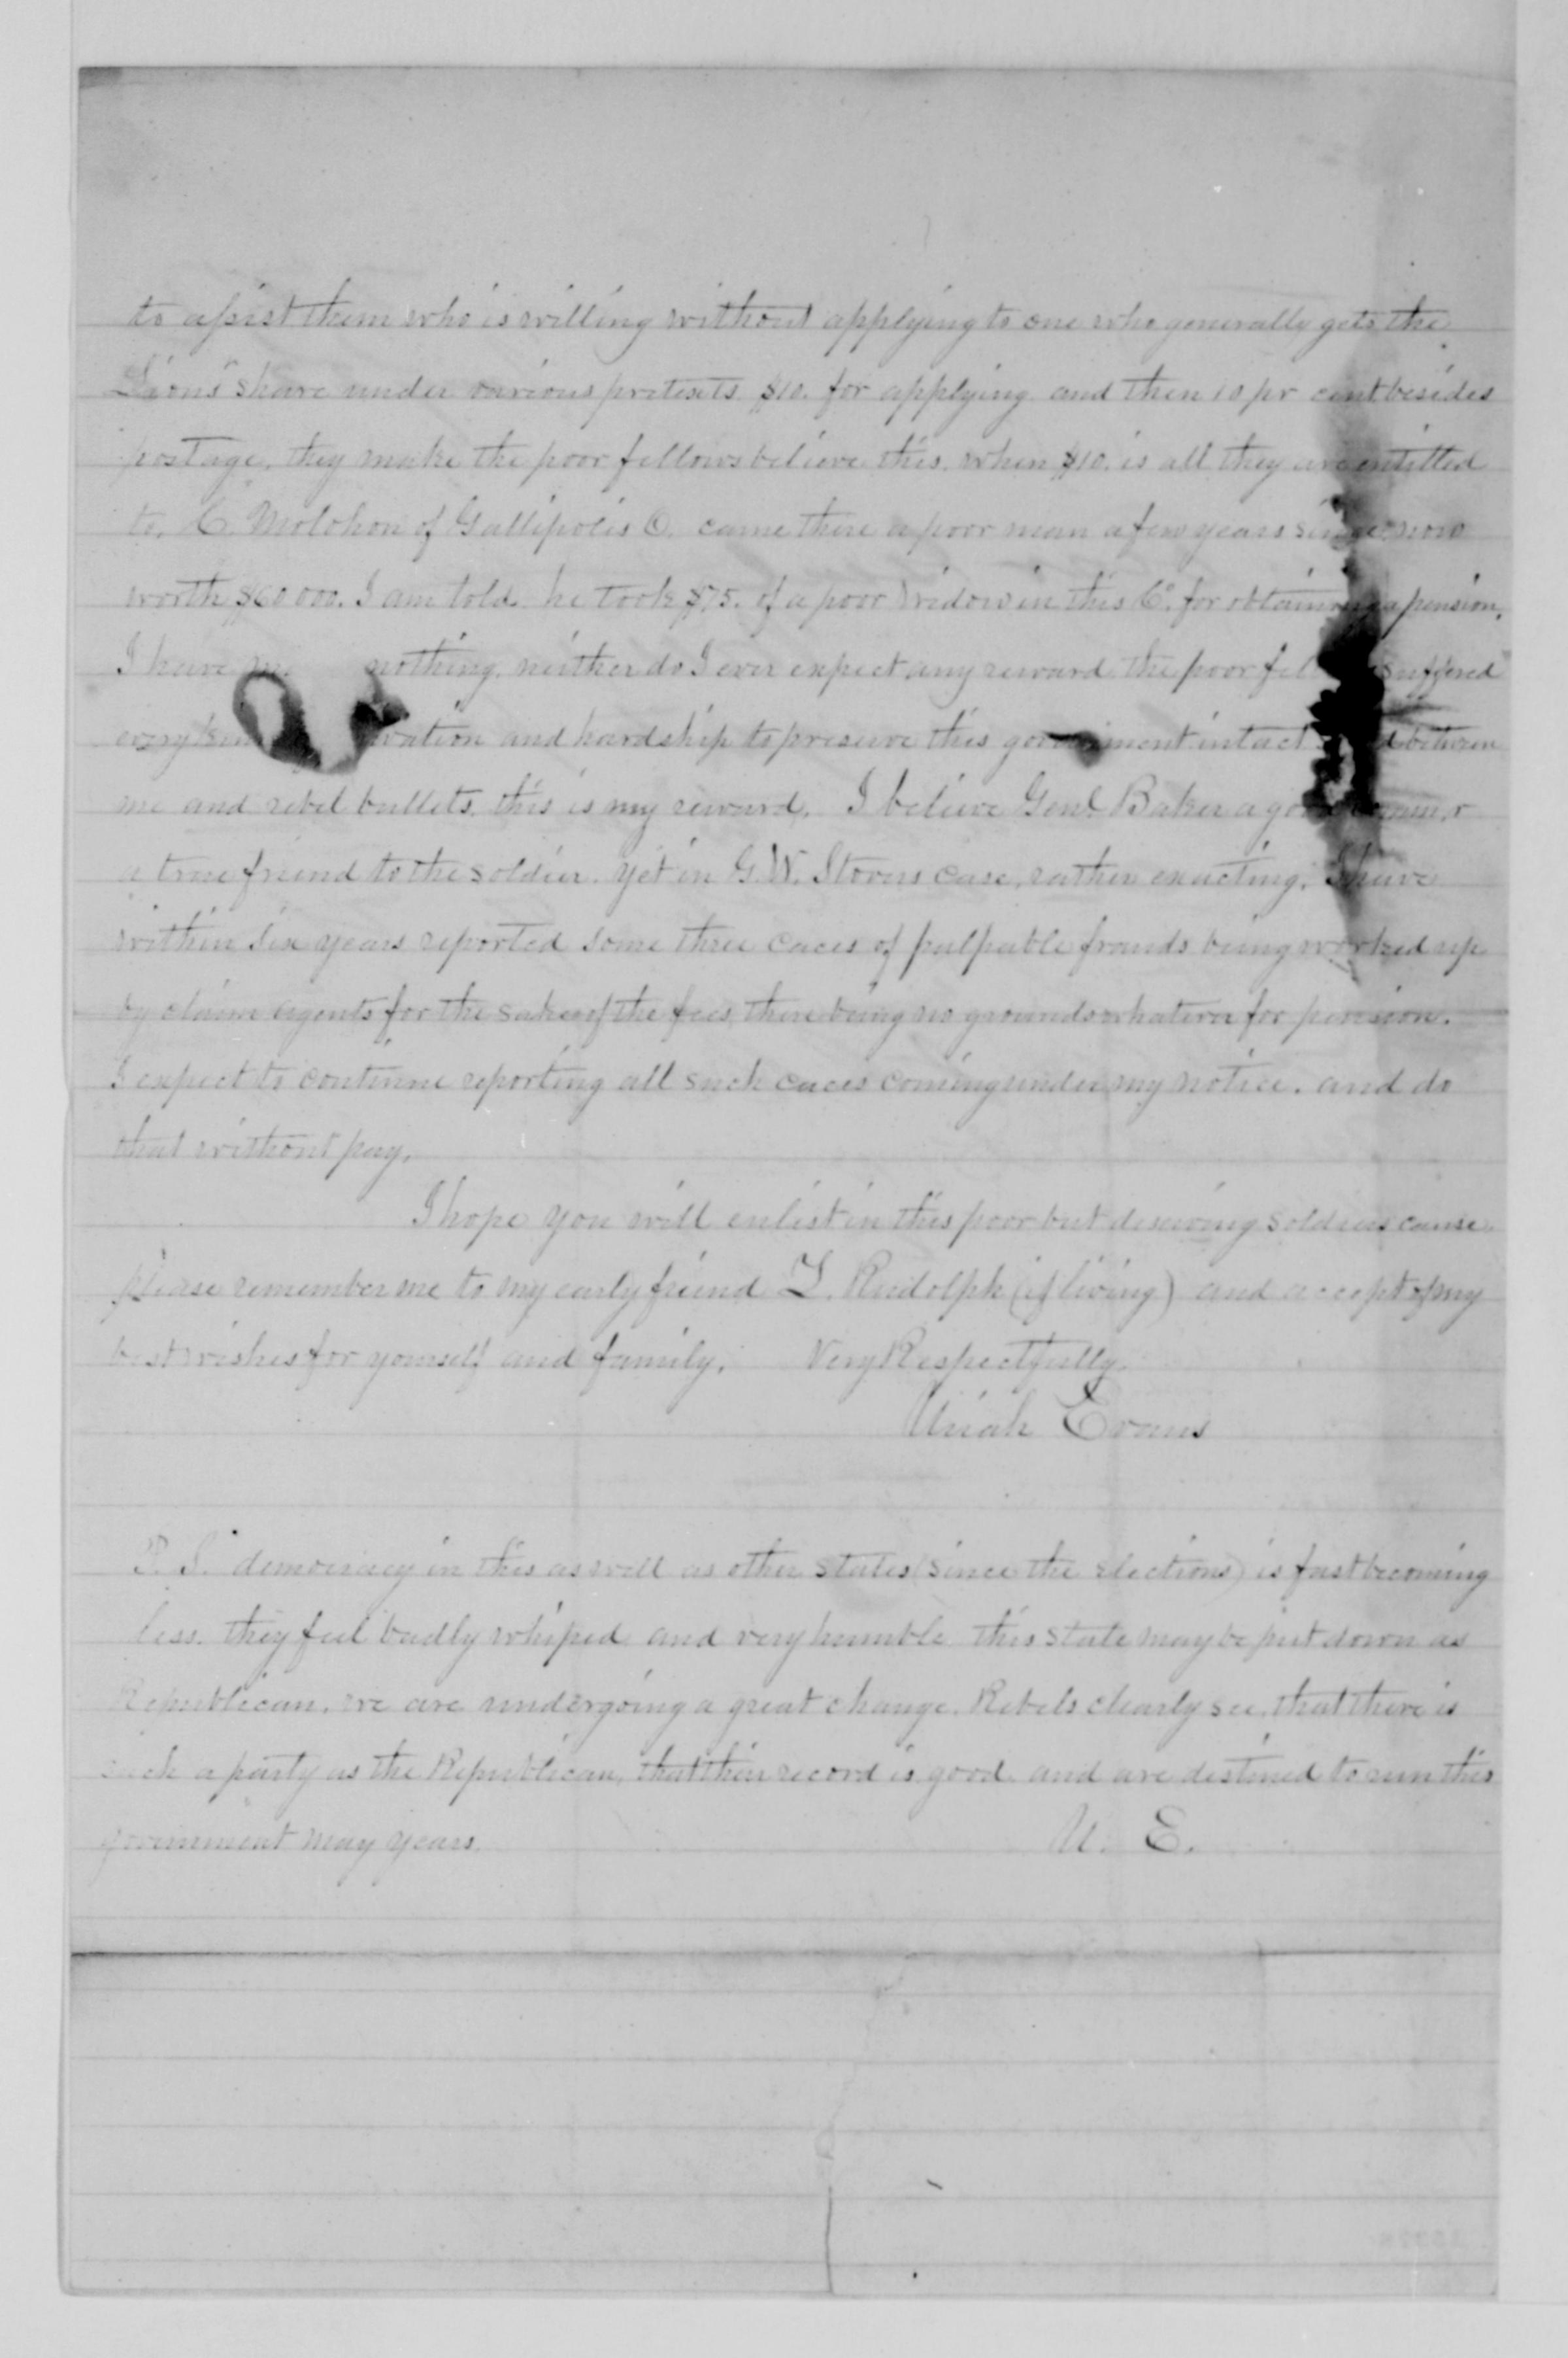 to assist them who is willing without applying to one who generally gets the
Lions share under various pretexts $10. for applying and then 10 pr cent besides
postage. they make the poor fellows believe this. when $10. is all they are entitled
to. C. Molohon of Gallipolis O. came there a poor man a few years since now
worth $60000. I am told he took $75. of a poor Widow in this Co. for obtaining a pension.
I have nothing. neither do I ever expect any reward the poor suffered
every and hardship to preserve this government intact between
me and rebel bullets. this is my reward. I believe Genl Baker a good
a true friend to the soldier. yet in G.W. Stovers case, rather exacting. I have
within six years reported some three caces of palpable frauds being worked up
by claim agents for the sake of the fees, there being no grounds whatever for pension.
I expect to continue reporting all such caces coming under my notice. and do
that without pay.
I hope you will enlist in this poor but deserving soldiers cause.
please remember me to my early friend Z. Rudolph (if living) and accept of my
best wishes for yourself and family. Very Respectfully
Uriah Evans
P.S. democracy in this as well as other states (since the elections) is fast becoming
less. they feel badly whiped and very humble this state may be put down as
Republican. we are undergoing a great change. Rebels clearly see, that there is
such a party as the Republican, that their record is good. and are destined to run this
government may years.
U. E.